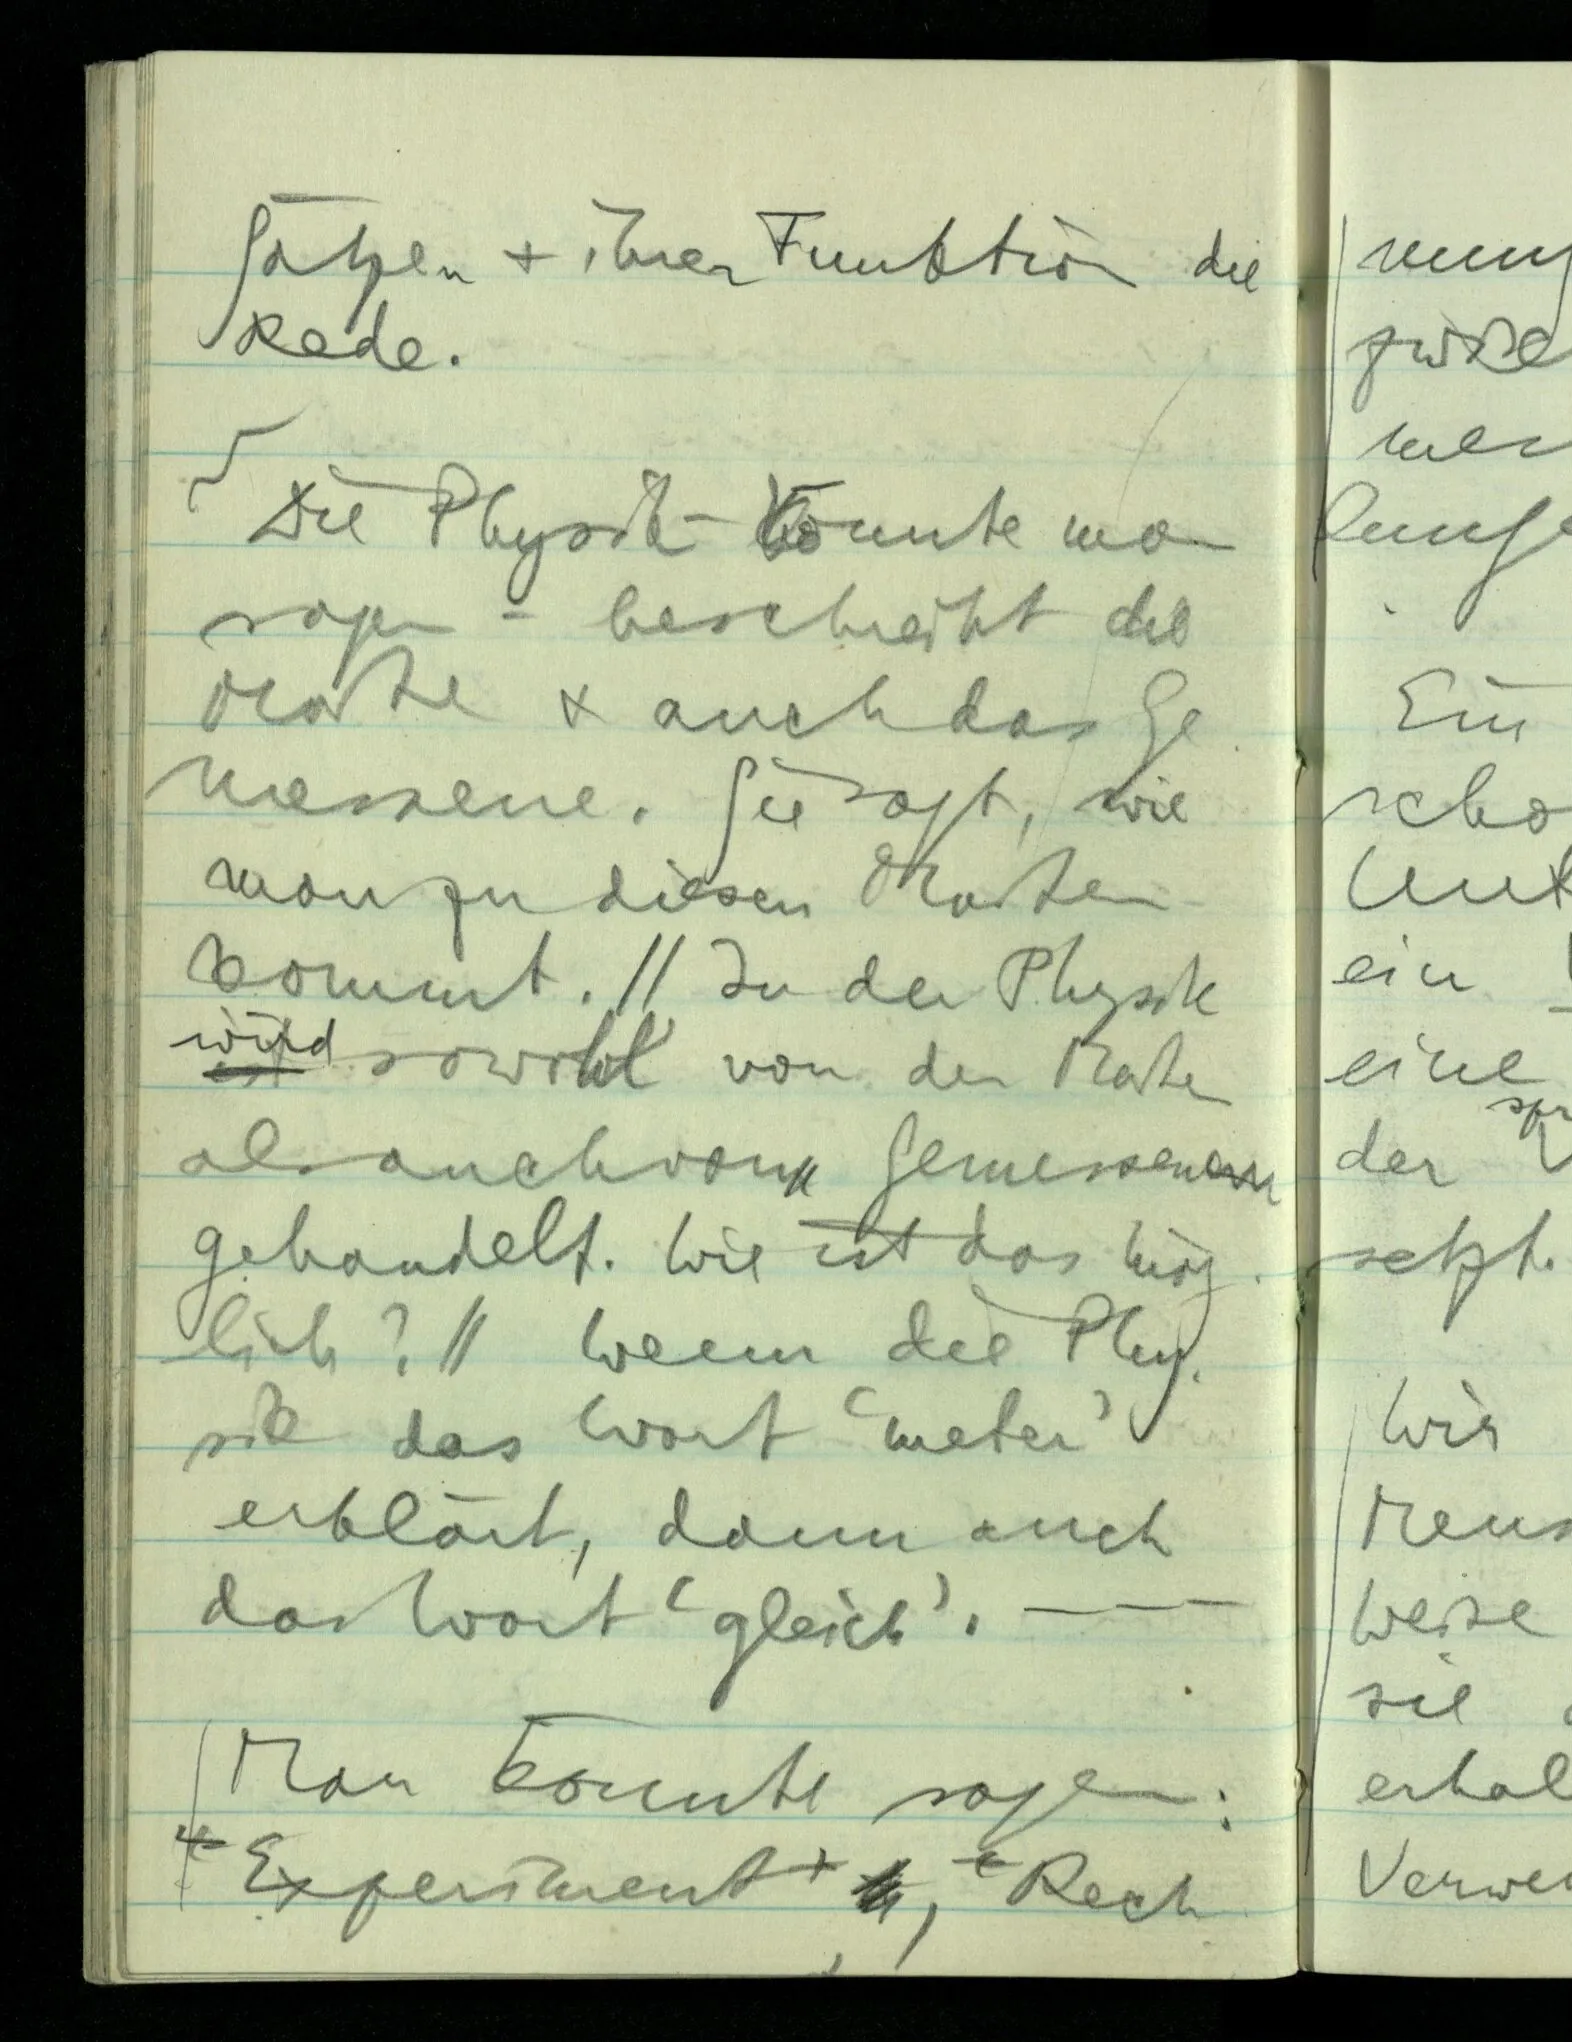 Sätzen + ihrer Funktion die
Rede.
Die Physik – könnte man
sagen – beschreibt die
Maße + auch das Ge
messene. Sie sagt, wie
man zu diesen Maßen
kommt. // In der Physik
wird sowohl von den Maßen
als auch vom Gemessenen
gehandelt. Wie ist das mög
lich? // Wenn die Phy
sik das Wort ‘meter’
erklärt, dann auch
das Wort ‘gleich’. – – –
Man könnte sagen:
Experiment + , Rech
ein
eine
der
setzt.
Wir
Weise
sie